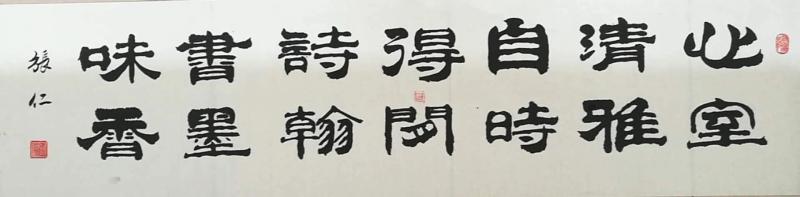 心清自得詩書味
室雅時聞翰墨香
張仁